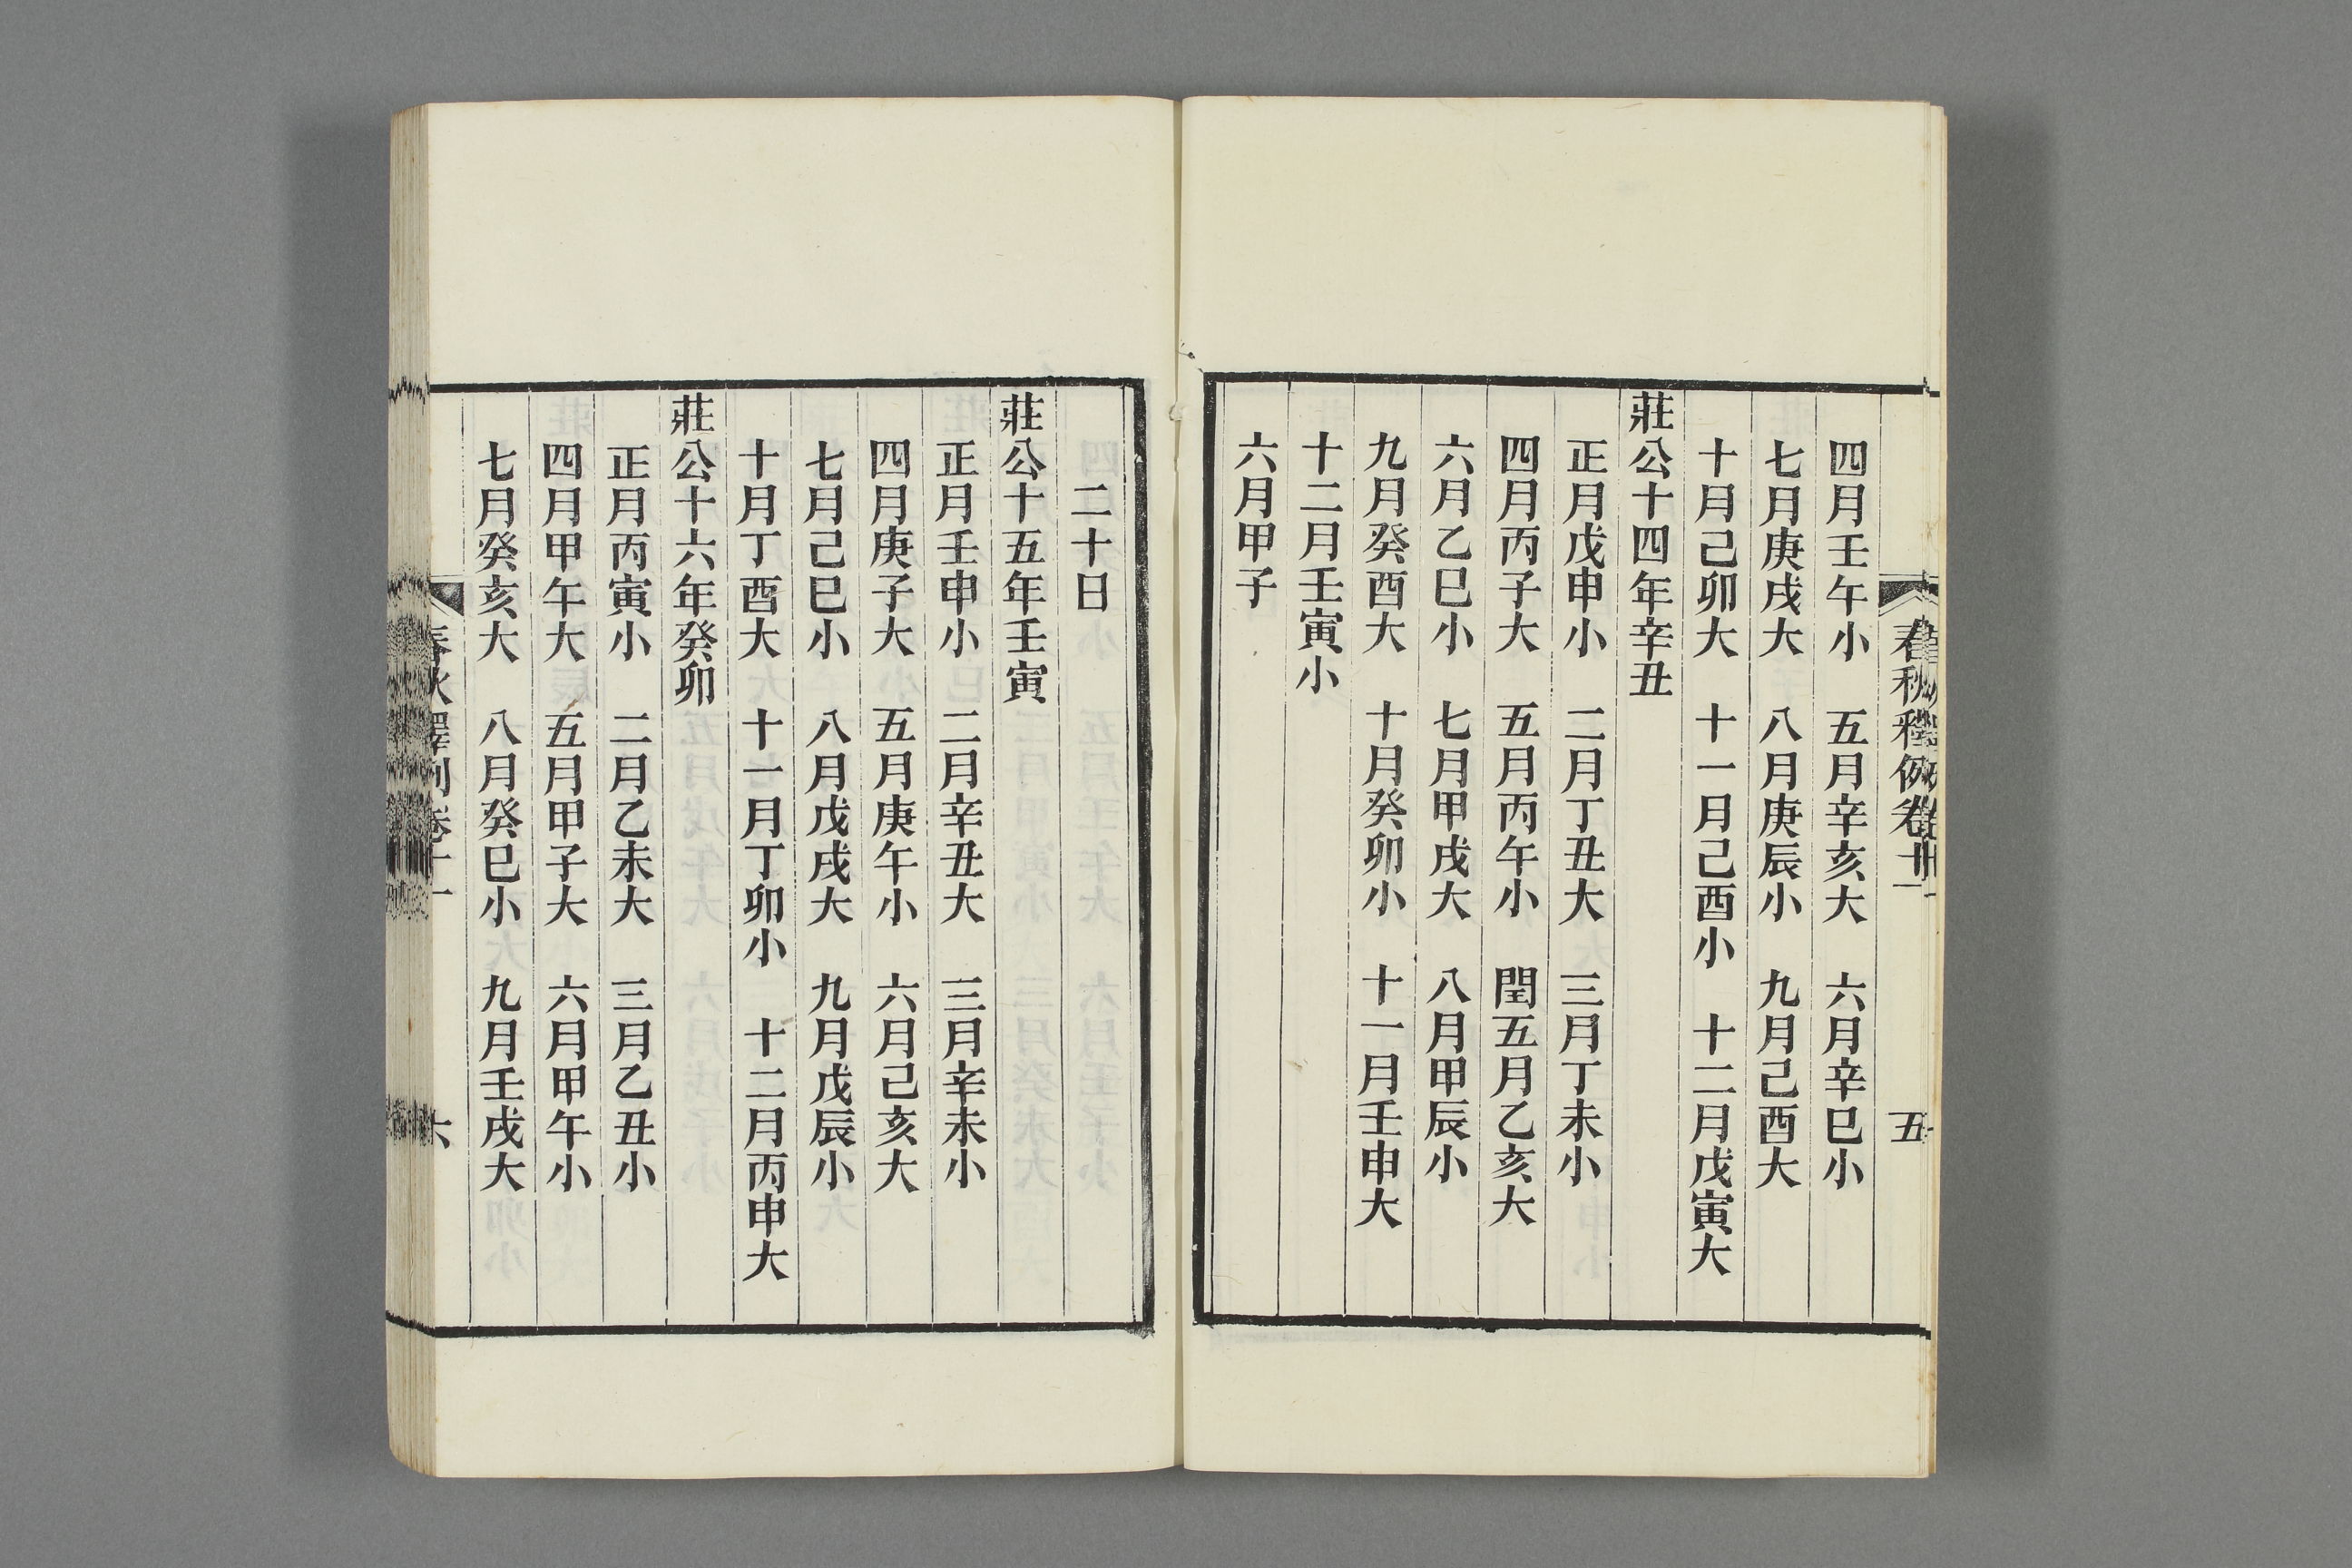 春秋釋例卷十一
五
四月壬午小　五月辛亥大　六月辛巳小
七月庚戌大　八月庚辰小　九月己酉大
十月己卯大　十一月己酉小　十二月戊寅大
莊公十四年辛丑
正月戊申小　二月丁丑大　三月丁未小
四月丙子大　五月丙午小　閏五月乙亥大
六月乙巳小　七月甲戌大　八月甲辰小
九月癸酉大　十月癸卯小　十一月壬申大
十二月壬寅小
六月甲子
二十日
莊公十五年壬寅
正月壬申小　二月辛丑大　三月辛未小
四月庚子大　五月庚午小　六月己亥大
七月己巳小　八月戊戌大　九月戊辰小
十月丁酉大　十一月丁卯小　十二月丙申大
莊公十六年癸卯
正月丙寅小　二月乙未大　三月乙丑小
四月甲午大　五月甲子大　六月甲午小
七月癸亥大　八月癸巳小　九月壬戌大
春秋釋例卷十一
六